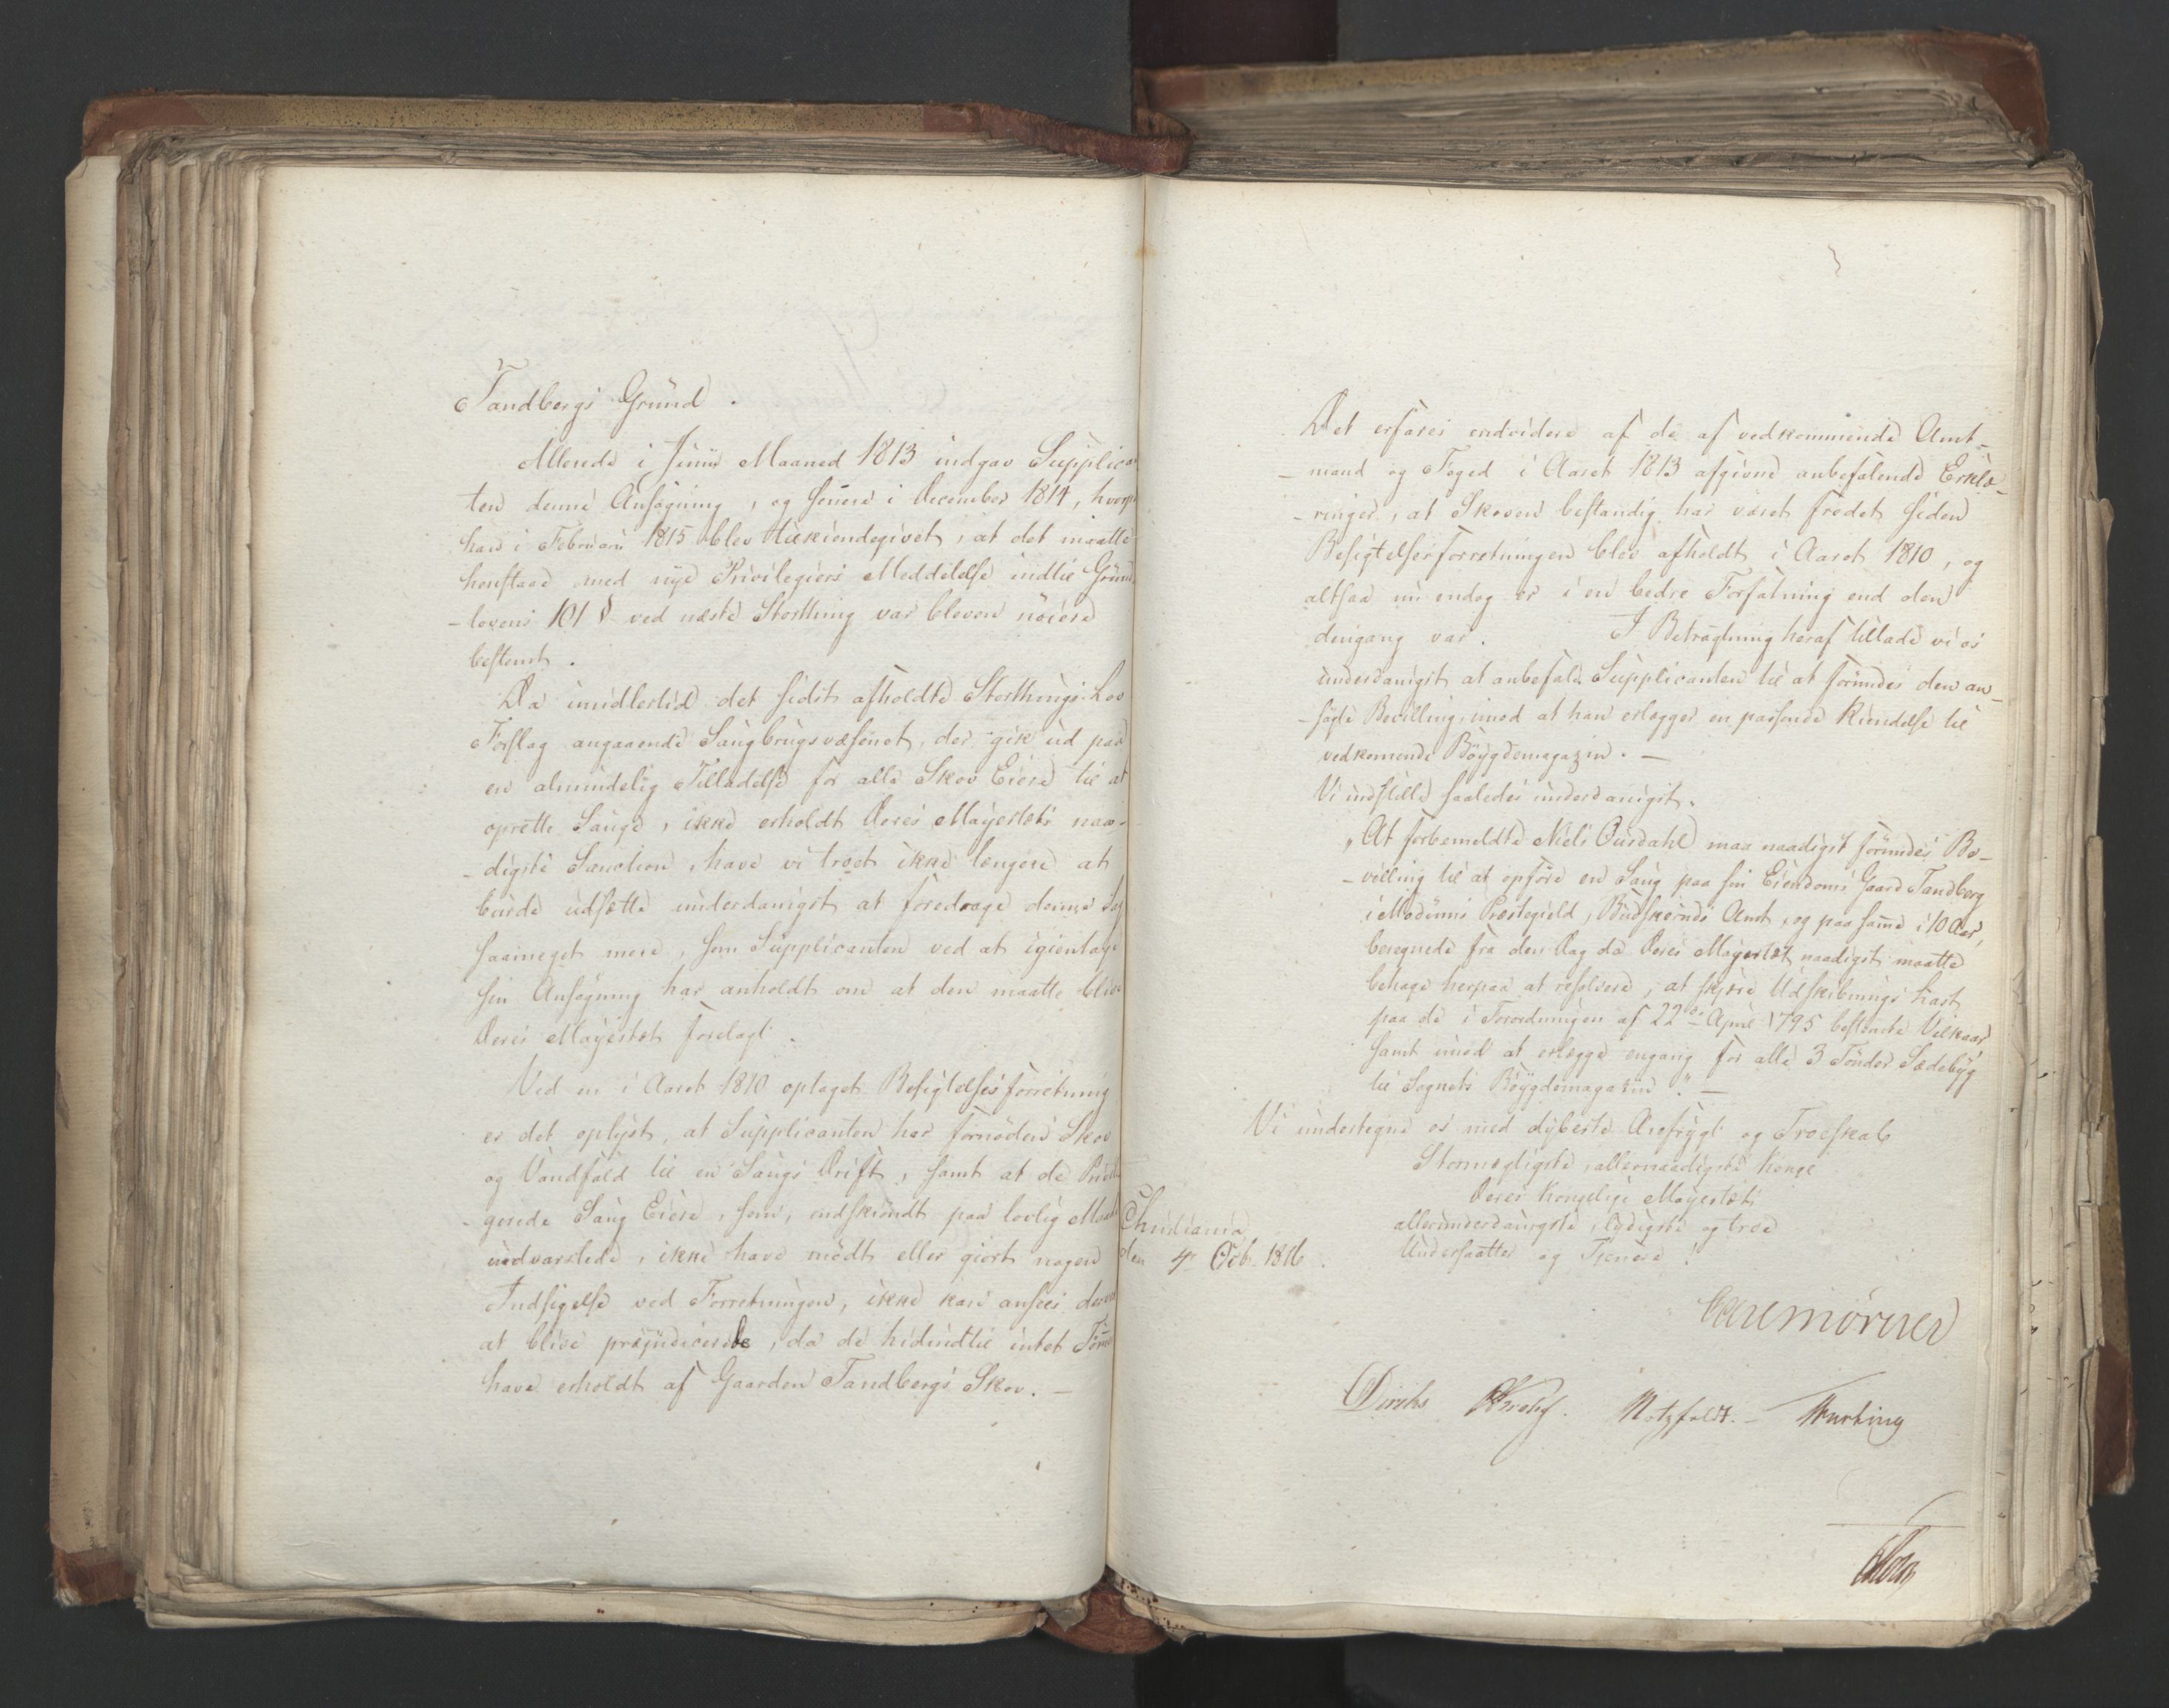 Tandbergs Grund.
Allerede i Junii Maaned 1813 indgav Supplican
ten denne Ansøgning, og senere i December 1814, hvorp
han i Februari 1815 blev tilkiendegivet, at det maatte
henstaae med nye Privilegiers Meddelelse indtil Grund
-lovens 101 § ved næste Storthing var bleven nöiere
bestemt.
Da imidlertid det sidst afholdte Storthings Lov
Forslag angaaende Saugbrugsvæsenet, der gik ud paa
en almindelig Tilladelse for alle Skov Eiere til at
oprette Sauge, ikke erholdt Deres Mayestets naa-
-digste Sanction, have vi troet ikke længere at
burde udsætte underdanigst at foredrage denne Sag
saameget mere, som Supplicanten ved at igientage
sin Ansøgning har anholdt om at den maatte blive
Deres Mayestæt forelagt.
Ved en i Aaret 1810 optaget Besigtelsesforretning
er det oplyst, at Supplicanten har fornöden Skov
og Vandfald til en Saugs Drift, samt at de Privile
-gerede Saug Eiere, som, endskiöndt paa lovlig Maade
indvarslede, ikke have mödt eller giort nogen
Indsigelse ved Forretningen, ikke kan ansees derved
at blive præjudicerede, da de hidindtil intet Tömmer
have erholdt af Gaarden Tandbergs Skov. —
Det erfares endvidere af de af vedkommende Amt-
-mand og Foged i Aaret 1813 afgivne anbefalende Erklæ-
-ringer, at Skoven bestandig har været fredet siden
Besigtelsesforretningen blev afholdt i Aaret 1810, og
altsaa nu endog er i en bedre Forfatning end den
dengang var. I Betragtning heraf tillade vi os
underdanigst at anbefale Supplicanten til at forundes den an-
-søgte Bevilling, imod at han erlægger en passende Kiendelse til
vedkomende Böygdemagazin. —
Vi indstille saaledes underdanigst.
"At forbemeldte Niels Ousdahl maa naadigst forundes Be-
-villing til at opföre en Saug paa sin Eiendoms Gaard Tandberg
i Modums Præstegield, Budskeruds Amt, og paa samme i 10 Aar,
beregnede fra den Dag da Deres Mayestæt naadigst maatte
behage herpaa at resolvere, at skjære Udskibnings Last
paa de i Forordningen af 22de April 1795 bestemte Vilkaar
samt imod at erlægge engang for alle 3 Tönder Sædebyg
til Sognets Böygdemagazin". —
Vi undertegne os med dybeste Ærefrygt og Troeskab
Stormægtigste, allernaadigste Konge
Deres Kongelige Mayestæts
allerunderdanigste, lydigste og troe
Undersaatter og Tienere!
Christiania
den 4 Octb. 1816.
Carl Mörner
Diriks Krohg. Motzfeldt. — Hurting